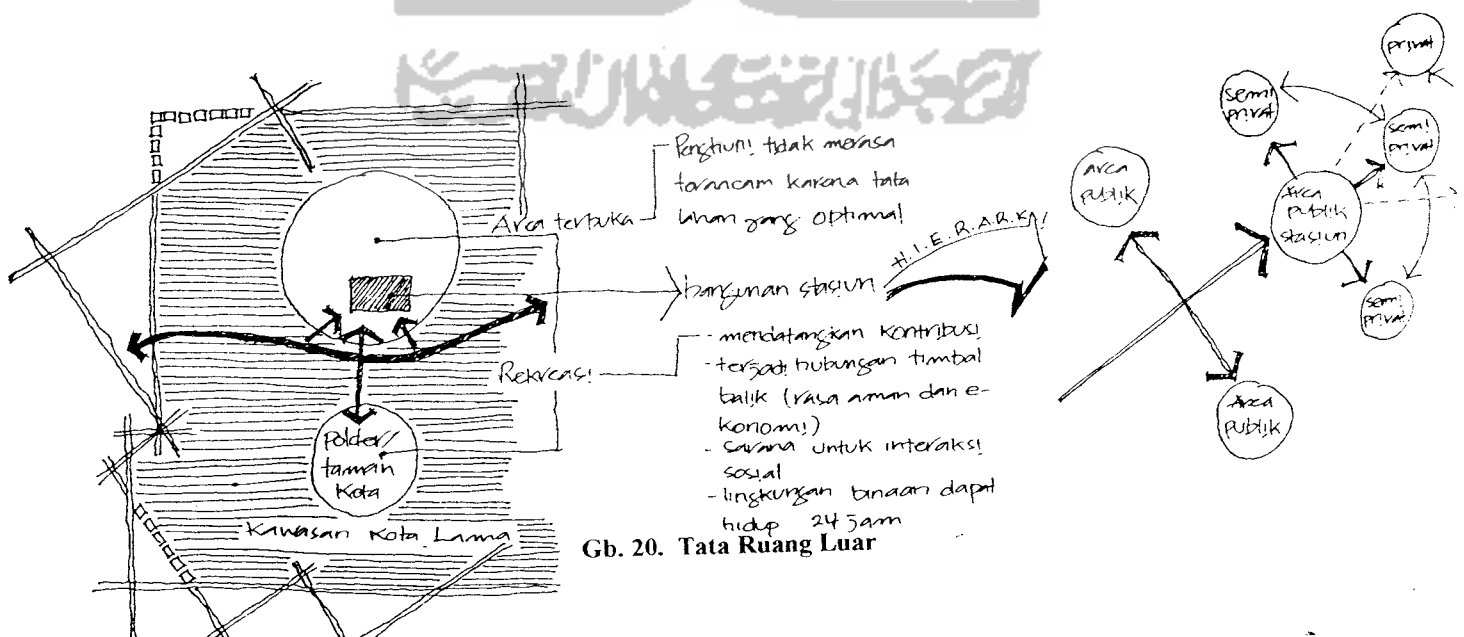 Penghuni tidak merasa
terancam karena tata
lahan yang optimal
Area terbuka
bangunan stasiun
H.I.E.R.A.R.K.I
Rekreasi
- mendatangkan kontribusi
- terjadi hubungan timbal
balik (rasa aman dan e-
konomi)
- sarana untuk interaksi
sosial
- lingkungan binaan dapat
hidup 24 jam
Polder/
taman
Kota
Kawasan Kota Lama
Gb. 20. Tata Ruang Luar
area
publik
Area
publik
Area
publik
stasiun
semi
privat
semi
privat
semi
privat
privat